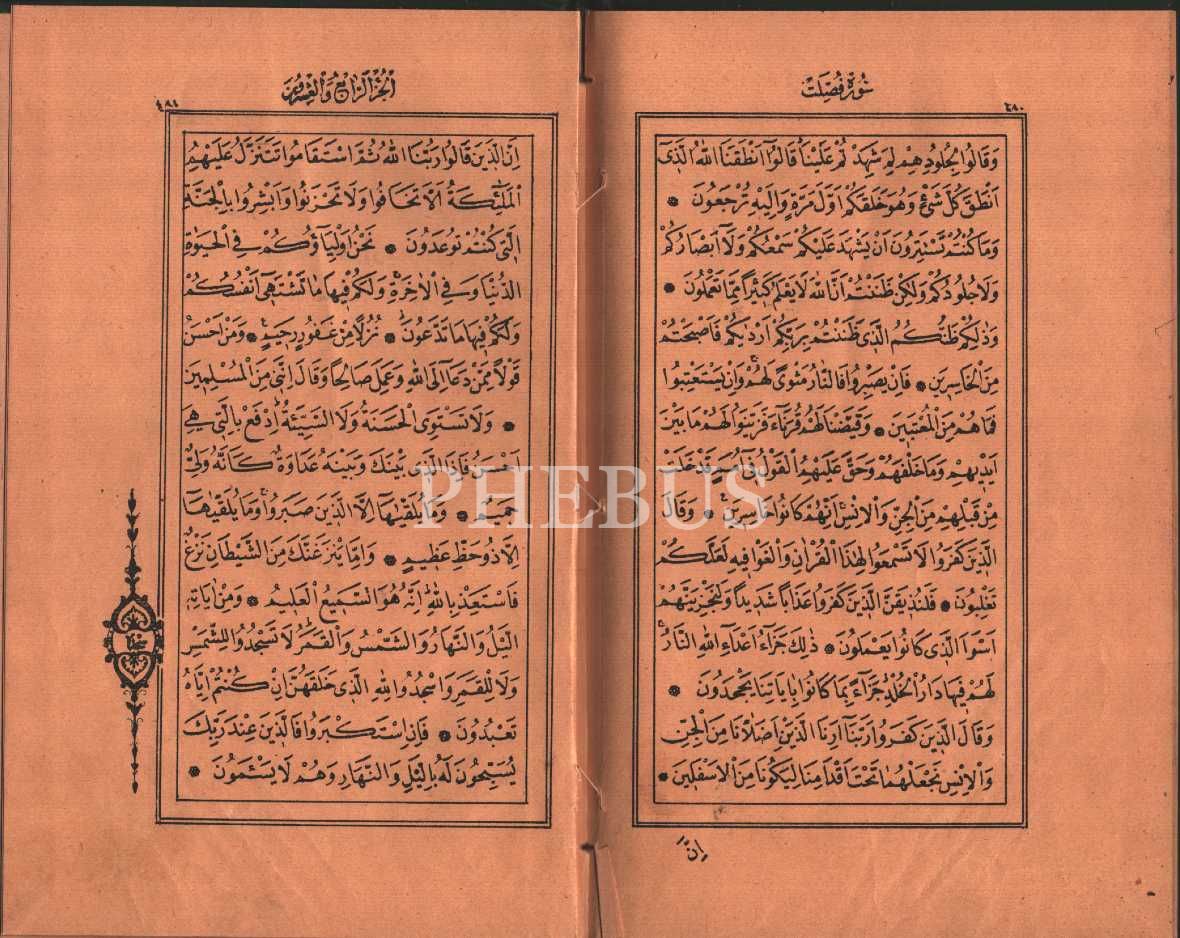 سُورَةُ فُصِّلَتْ
٤٨٠
وَقَالُوا لِجُلُودِهِمْ لِمَ شَهِدْتُمْ عَلَيْنَا قَالُوا أَنْطَقَنَا اللّٰهُ الَّذِى
اَنْطَقَ كُلَّ شَىْءٍ وَهُوَ خَلَقَكُمْ اَوَّلَ مَرَّةٍ وَاِلَيْهِ تُرْجَعُونَ *
وَمَا كُنْتُمْ تَسْتَتِرُونَ اَنْ يَشْهَدَ عَلَيْكُمْ سَمْعُكُمْ وَلَا اَبْصَارُكُمْ
وَلَا جُلُودُكُمْ وَلٰكِنْ ظَنَنْتُمْ اَنَّ اللّٰهَ لَا يَعْلَمُ كَثِيرًا مِمَّا تَعْمَلُونَ *
وَذٰلِكُمْ ظَنُّكُمُ الَّذِى ظَنَنْتُمْ بِرَبِّكُمْ اَرْدٰيكُمْ فَاَصْبَحْتُمْ
مِنَ الْخَاسِرِينَ * فَاِنْ يَصْبِرُوا فَالنَّارُ مَثْوًى لَهُمْ وَاِنْ يَسْتَعْتِبُوا
فَمَا هُمْ مِنَ الْمُعْتَبِينَ * وَقَيَّضْنَا لَهُمْ قُرَنَاءَ فَزَيَّنُوا لَهُمْ مَا بَيْنَ
اَيْدِيهِمْ وَمَا خَلْفَهُمْ وَحَقَّ عَلَيْهِمُ الْقَوْلُ فِى اُمَمٍ قَدْ خَلَتْ
مِنْ قَبْلِهِمْ مِنَ الْجِنِّ وَالْاِنْسِ اِنَّهُمْ كَانُوا خَاسِرِينَ * وَقَالَ
الَّذِينَ كَفَرُوا لَا تَسْمَعُوا لِهٰذَا الْقُرْاٰنِ وَالْغَوْا فِيهِ لَعَلَّكُمْ
تَغْلِبُونَ * فَلَنُذِيقَنَّ الَّذِينَ كَفَرُوا عَذَابًا شَدِيدًا وَلَنَجْزِيَنَّهُمْ
اَسْوَاَ الَّذِى كَانُوا يَعْمَلُونَ * ذٰلِكَ جَزَاءُ اَعْدَاءِ اللّٰهِ النَّارُ
لَهُمْ فِيهَا دَارُ الْخُلْدِ جَزَاءً بِمَا كَانُوا بِاٰيَاتِنَا يَجْحَدُونَ *
وَقَالَ الَّذِينَ كَفَرُوا رَبَّنَا اَرِنَا الَّذَيْنِ اَضَلَّانَا مِنَ الْجِنِّ
وَالْاِنْسِ نَجْعَلْهُمَا تَحْتَ اَقْدَامِنَا لِيَكُونَا مِنَ الْاَسْفَلِينَ *
اِنَّ
اَلْجُزْءُ الرَّابِعُ وَالْعِشْرُونَ
٤٨١
اِنَّ الَّذِينَ قَالُوا رَبُّنَا اللّٰهُ ثُمَّ اسْتَقَامُوا تَتَنَزَّلُ عَلَيْهِمُ
الْمَلٰئِكَةُ اَلَّا تَخَافُوا وَلَا تَحْزَنُوا وَاَبْشِرُوا بِالْجَنَّةِ
الَّتِى كُنْتُمْ تُوعَدُونَ * نَحْنُ اَوْلِيَاؤُكُمْ فِى الْحَيٰوةِ
الدُّنْيَا وَفِى الْاٰخِرَةِ وَلَكُمْ فِيهَا مَا تَشْتَهِى اَنْفُسُكُمْ
وَلَكُمْ فِيهَا مَا تَدَّعُونَ * نُزُلًا مِنْ غَفُورٍ رَحِيمٍ * وَمَنْ اَحْسَنُ
قَوْلًا مِمَّنْ دَعَا اِلَى اللّٰهِ وَعَمِلَ صَالِحًا وَقَالَ اِنَّنِى مِنَ الْمُسْلِمِينَ
* وَلَا تَسْتَوِى الْحَسَنَةُ وَلَا السَّيِّئَةُ اِدْفَعْ بِالَّتِى هِىَ
اَحْسَنُ فَاِذَا الَّذِى بَيْنَكَ وَبَيْنَهُ عَدَاوَةٌ كَاَنَّهُ وَلِىٌّ
حَمِيمٌ * وَمَا يُلَقّٰيهَا اِلَّا الَّذِينَ صَبَرُوا وَمَا يُلَقّٰيهَا
اِلَّا ذُو حَظٍّ عَظِيمٍ * وَاِمَّا يَنْزَغَنَّكَ مِنَ الشَّيْطَانِ نَزْغٌ
فَاسْتَعِذْ بِاللّٰهِ اِنَّهُ هُوَ السَّمِيعُ الْعَلِيمُ * وَمِنْ اٰيَاتِهِ
الَّيْلُ وَالنَّهَارُ وَالشَّمْسُ وَالْقَمَرُ لَا تَسْجُدُوا لِلشَّمْسِ
وَلَا لِلْقَمَرِ وَاسْجُدُوا لِلّٰهِ الَّذِى خَلَقَهُنَّ اِنْ كُنْتُمْ اِيَّاهُ
تَعْبُدُونَ * فَاِنِ اسْتَكْبَرُوا فَالَّذِينَ عِنْدَ رَبِّكَ
يُسَبِّحُونَ لَهُ بِالَّيْلِ وَالنَّهَارِ وَهُمْ لَا يَسْئَمُونَ *
سجدة
PHEBUS